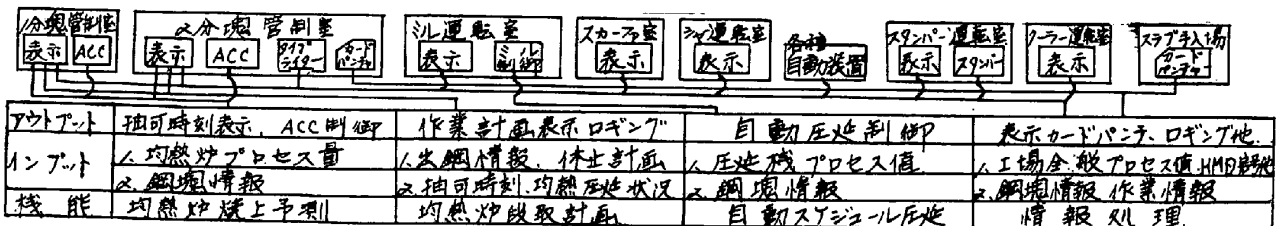 1分塊管制室
表示 ACC
2分塊管制室
表示 ACC タイプライター カードパンチャ
ミル運転室
表示 ミル制御
スカーファ室
表示
シャー運転室
表示
各種自動装置
スタンパー運転室
表示 スタンパー
クーラー運転室
表示
スラブ手入場
カードパンチャー
アウトプット 抽可時刻表示、ACC制御 作業計画表示ロギング 自動圧延制御 表示カードパンチ、ロギング他
インプット 1.均熱炉プロセス量 1.出鋼情報、休止計画 1.圧延機プロセス値 1.工場全般プロセス値、HMD信号他
2.鋼塊情報 2.抽可時刻、均熱圧延状況 2.鋼塊情報 2.鋼塊情報 作業情報
機能 均熱炉焼上予測 均熱炉段取計画 自動スケジュール圧延 情報処理